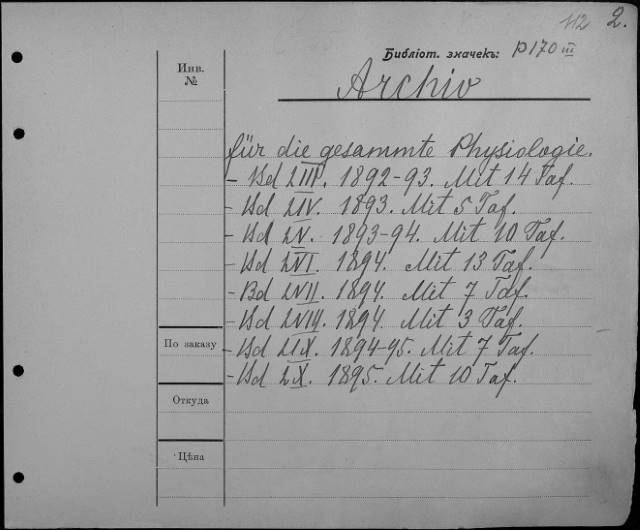 112 2.
Библіот. значекъ: P170 III
Инв.
№
Archiv
für die gesammte Physiologie.
- Bd LIII. 1892-93. Mit 14 Taf.
- Bd LIV. 1893. Mit 5 Taf.
- Bd LV. 1893-94. Mit 10 Taf.
- Bd LVI. 1894. Mit 13 Taf.
- Bd LVII. 1894. Mit 7 Taf.
- Bd LVIII. 1894. Mit 3 Taf.
По заказу
- Bd LIX. 1894-95. Mit 7 Taf.
- Bd LX. 1895. Mit 10 Taf.
Откуда
Цѣна